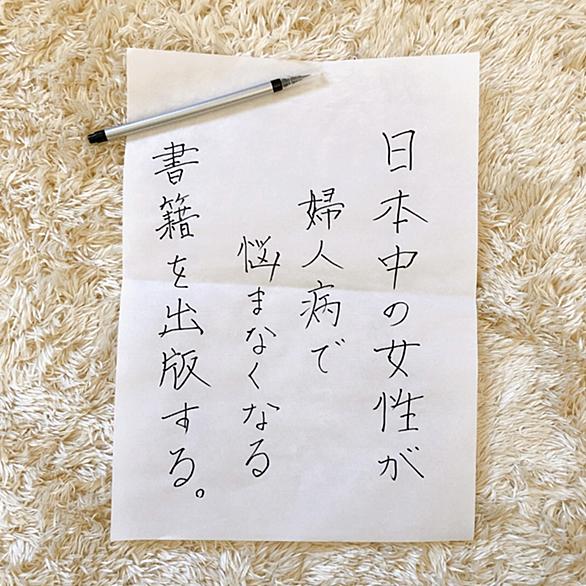 日本中の女性が
婦人病で
悩まなくなる
書籍を出版する。